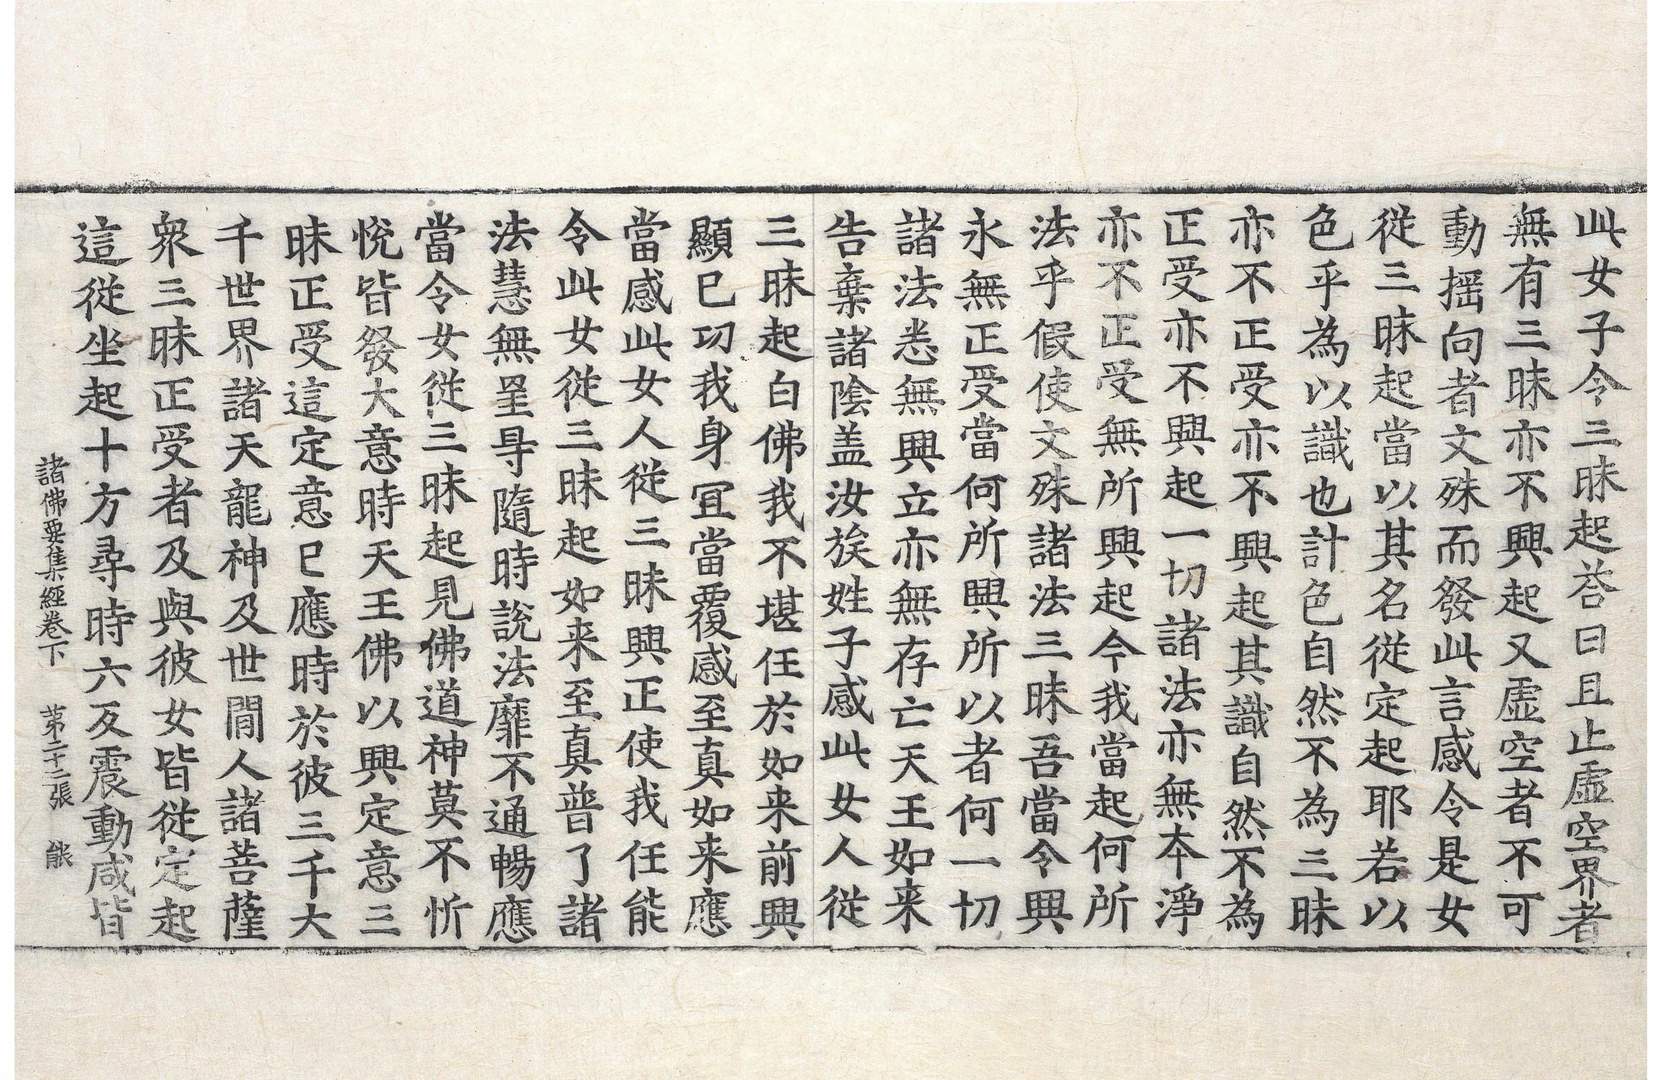 此女子令三昧起荅曰且止虛空界者
無有三昧亦不興起又虛空者不可
動搖向者文殊而發此言感令是女
從三昧起當以其名從定起耶若以
色乎為以識也計色自然不為三昧
亦不正受亦不興起其識自然不為
正受亦不興起一切諸法亦無本淨
亦不正受無所興起今我當起何所
法乎假使文殊諸法三昧吾當令興
永無正受當何所興所以者何一切
諸法悉無興立亦無存亡天王如来
告棄諸陰盖汝族姓子感此女人從
三昧起白佛我不堪任於如来前興
顯已功我身冝當覆感至真如来應
當感此女人從三昧興正使我任能
令此女從三昧起如来至真普了諸
法慧無罣㝵隨時說法靡不通暢應
當令女從三昧起見佛道神莫不忻
悅皆發大意時天王佛以興定意三
昧正受這定意已應時於彼三千大
千世界諸天龍神及世閒人諸菩薩
衆三昧正受者及與彼女皆從定起
這從坐起十方尋時六反震動咸皆
諸佛要集經卷下 苐二十二張 能